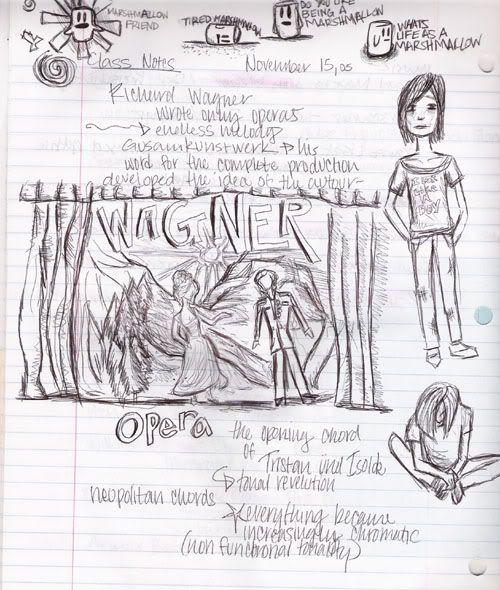 MARSHMALLOW
FRIEND
TIRED MARSHMALLOW
DO YOU LIKE
BEING A
MARSHMALLOW
WHATS
LIFE AS A
MARSHMALLOW
Class Notes
November 15, 05
Richard Wagner
wrote only operas
endless melody
Gusamkunstwerk → his
word for the complete production
developed the idea of the autour
WAGNER
LIKE
A
BOY
Opera
the opening chord
of Tristan und Isolde
tonal revelution
neopolitan chords
everything because
increasingly chromatic
(non functional tonality)